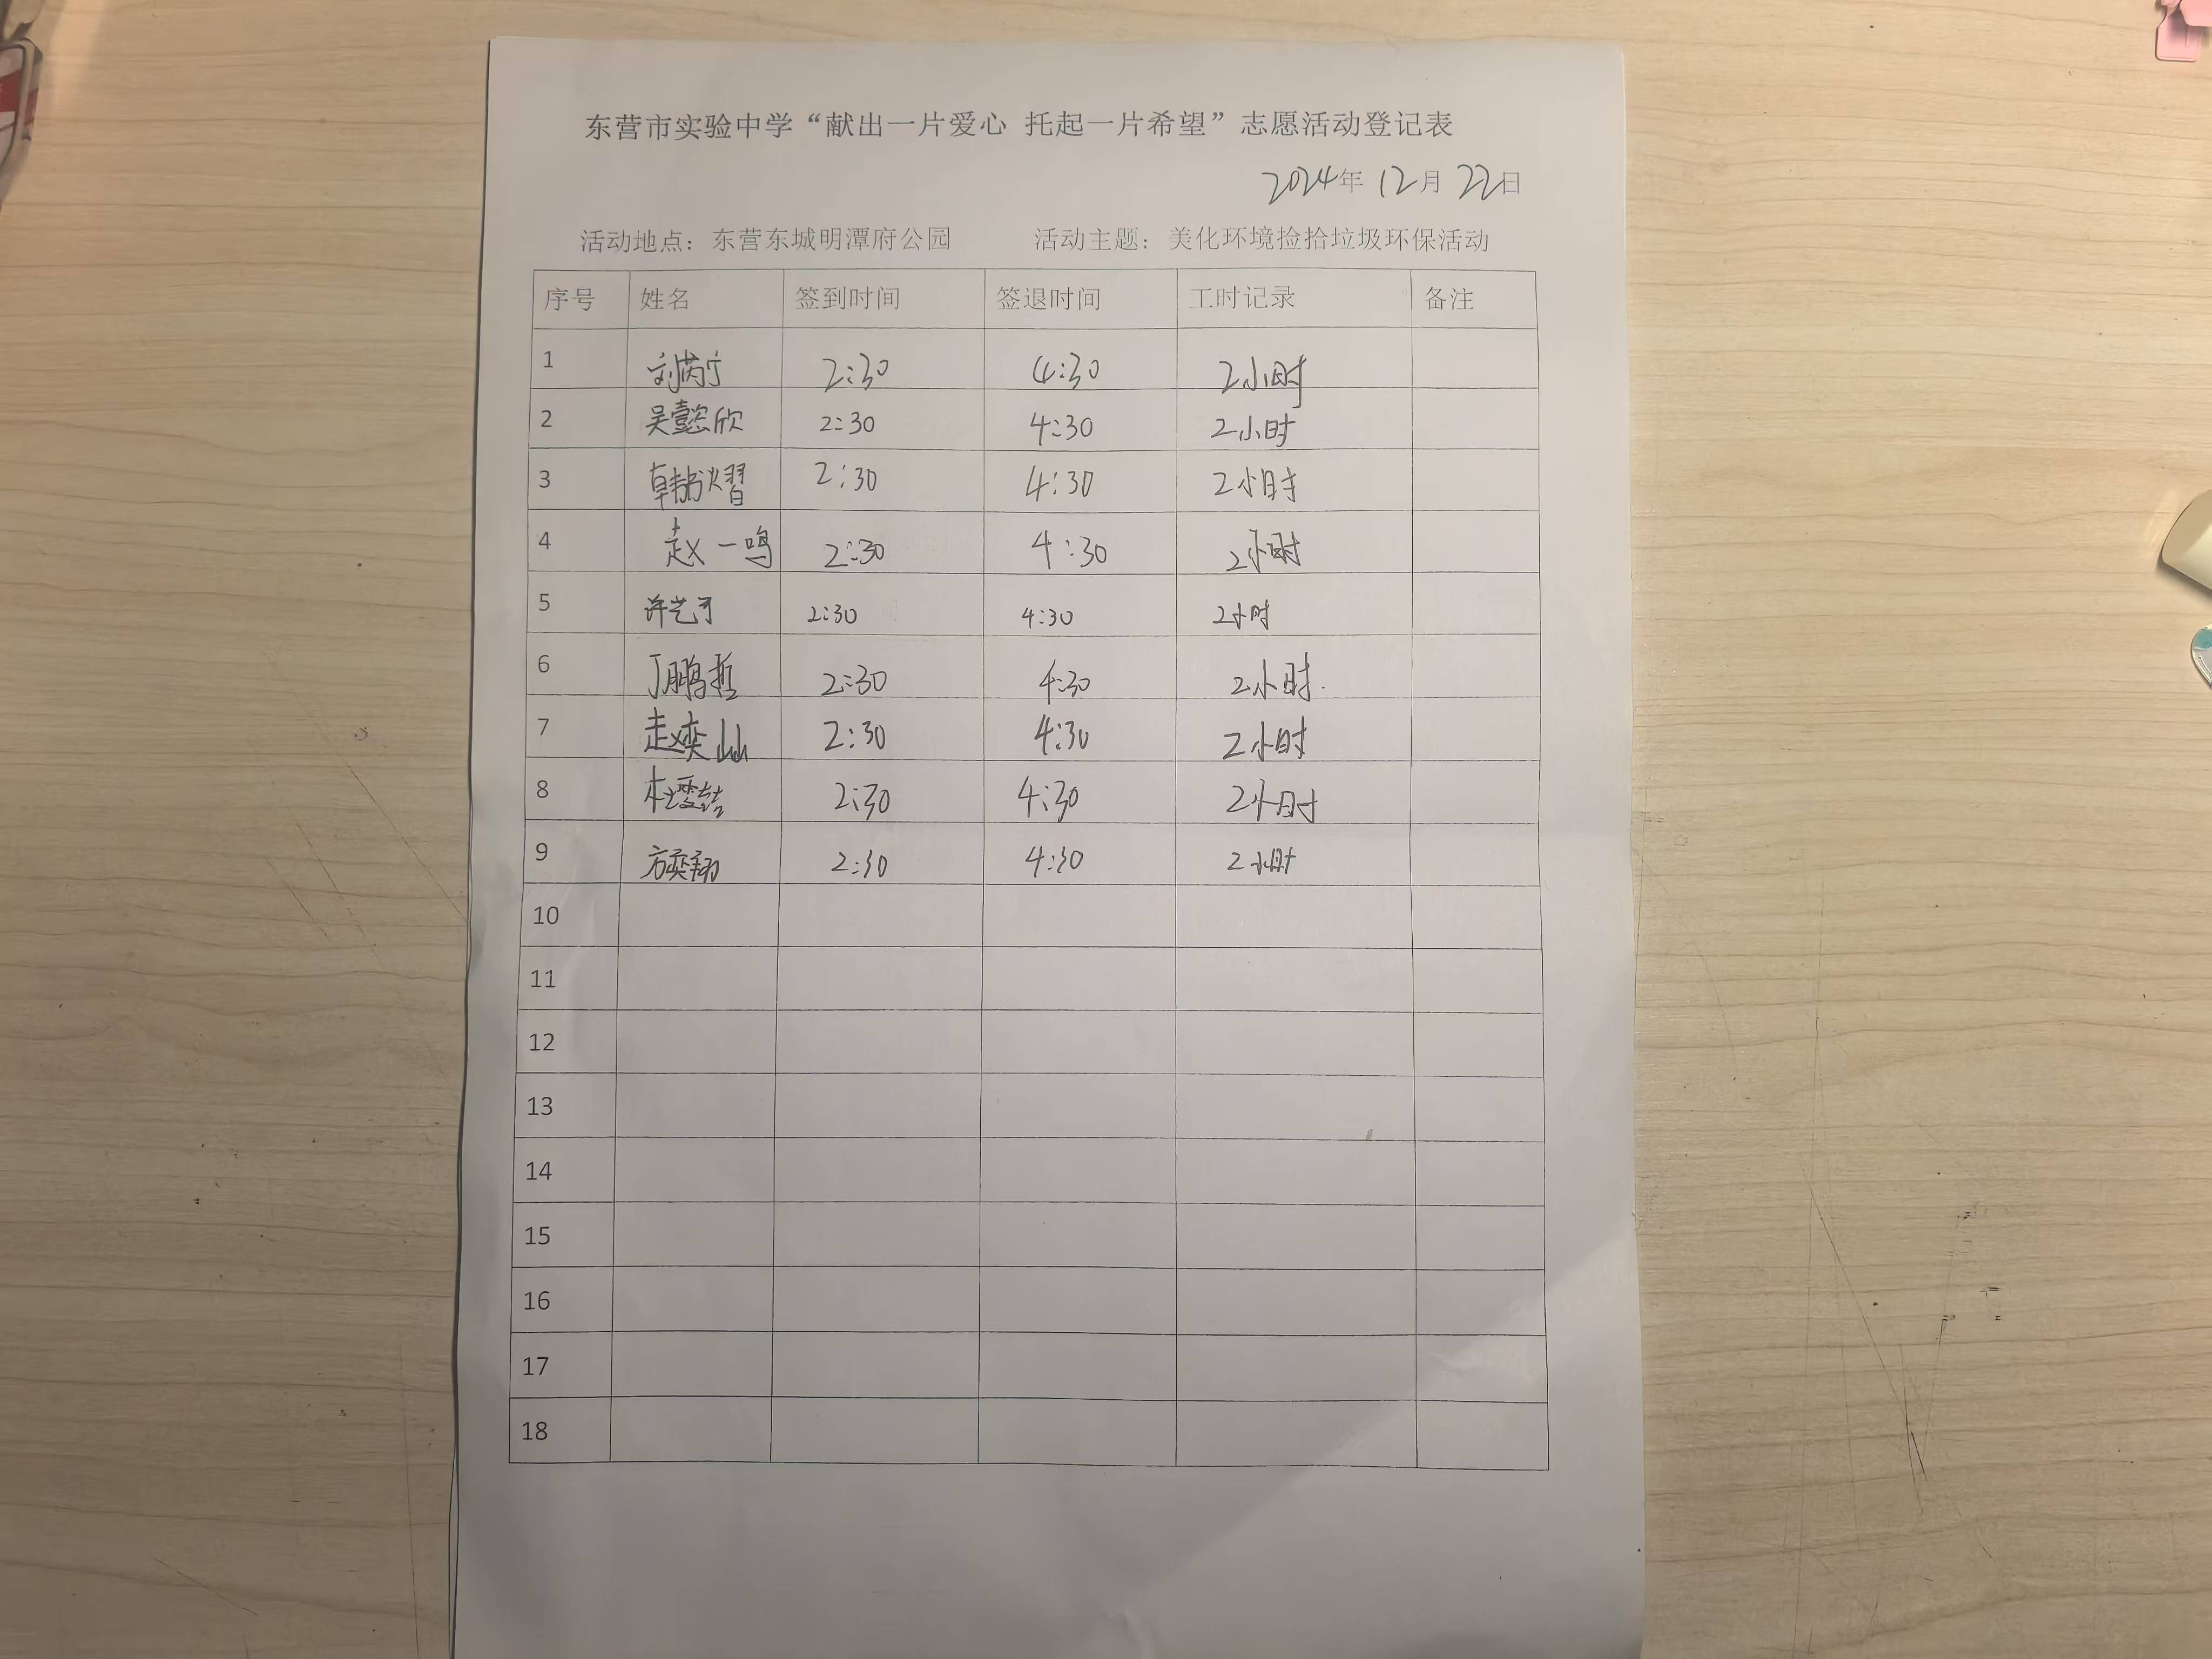 东营市实验中学“献出一片爱心 托起一片希望”志愿活动登记表
2024年 12月 22日
活动地点：东营东城明潭府公园 活动主题：美化环境捡拾垃圾环保活动
序号 姓名 签到时间 签退时间 工时记录 备注
1 刘芮宁 2:30 4:30 2小时
2 吴懿宸欣 2:30 4:30 2小时
3 韩熠 2:30 4:30 2小时
4 赵一鸣 2:30 4:30 2小时
5 许艺 2:30 4:30 2小时
6 丁鹏哲 2:30 4:30 2小时
7 赵奕山 2:30 4:30 2小时
8 杜雯喆 2:30 4:30 2小时
9 方奕翔 2:30 4:30 2小时
10
11
12
13
14
15
16
17
18